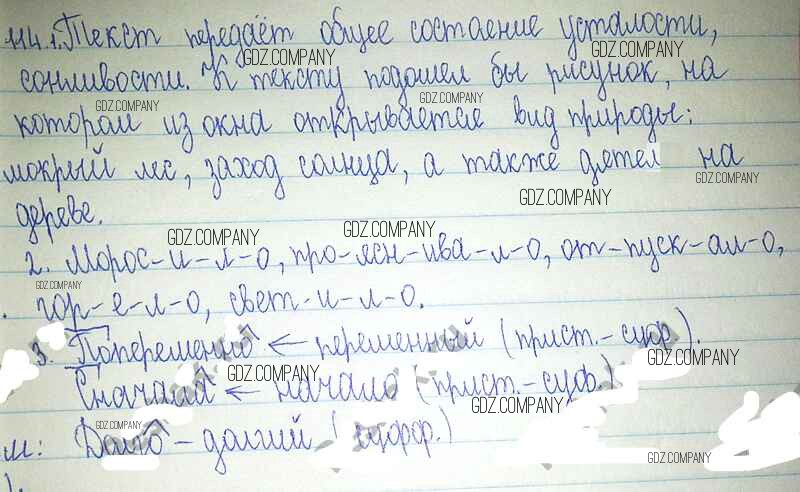 114.1. Текст передаёт общее состаение усталости,
сонливости. К тексту подошел бы рисунок, на
котором из окна открывается вид природы:
мокрый лес, заход солнца, а также дятел на
дереве.
2. Морос-и-л-о, про-ясн-ива-л-о, от-пуск-ал-о,
гор-е-л-о, свет-и-л-о.
3. Попеременно ← переменный (прист.-суф.).
Сначала ← начало (прист.-суф.)
м: Долго - долгий (суфф.)
GDZ.COMPANY
GDZ.COMPANY
GDZ.COMPANY
GDZ.COMPANY
GDZ.COMPANY
GDZ.COMPANY
GDZ.COMPANY
GDZ.COMPANY
GDZ.COMPANY
GDZ.COMPANY
GDZ.COMPANY
GDZ.COMPANY
GDZ.COMPANY
GDZ.COMPANY